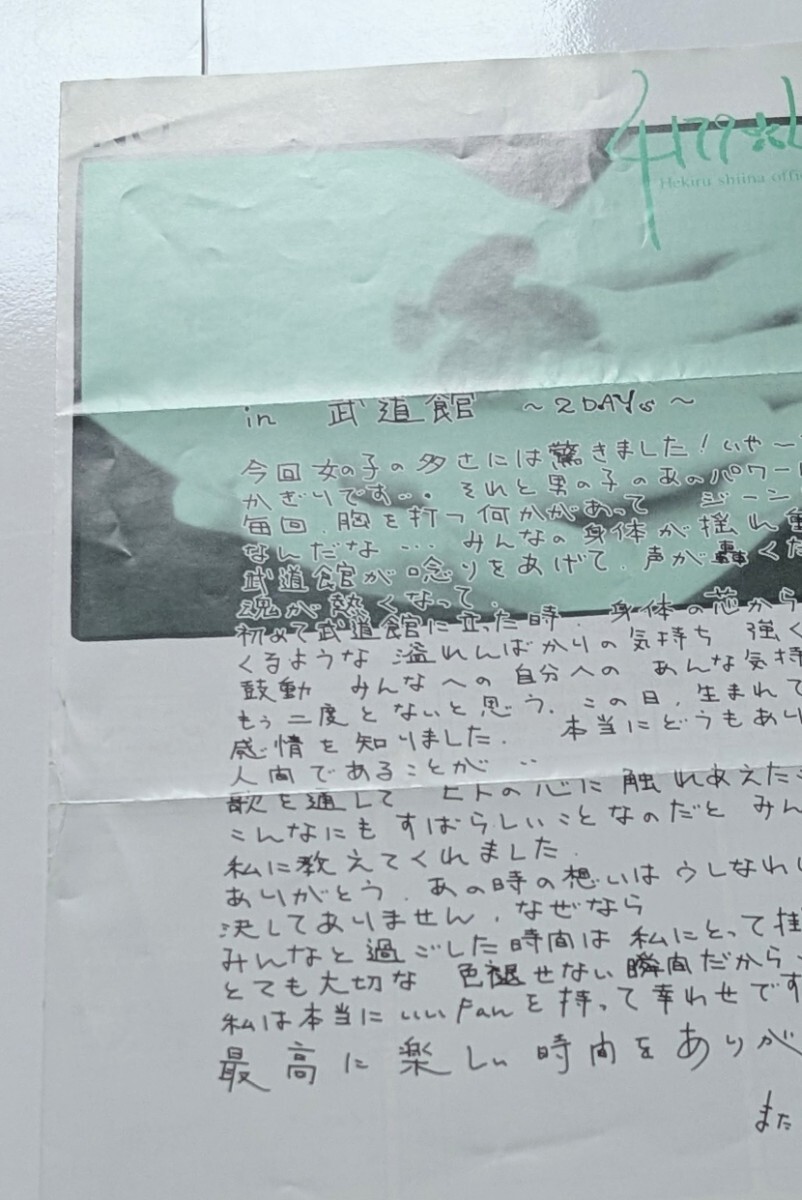 Hekiru shiina offi
in 武道館 ～2DAYs～
今回女の子の多さには驚きました!いや～
かぎりです…。それと男の子のあのパワー
毎回、胸を打つ何かがあって ジーン
なんだな… みんなの身体が揺れ
武道館が唸りをあげて、声が轟くた
魂が熱くなって、
初めて武道館に立った時、身体の芯から
くるような 溢れんばかりの気持ち 強く
鼓動 みんなへの自分への あんな気持
もう二度とないと思う、この日、生まれて
感情を知りました. 本当にどうもあり
人間であることが‥
歌を通して ヒトの心に触れあえたこ
こんなにも すばらしいことなのだと みん
私に教えてくれました.
ありがとう.あの時の想いはウしなわれ
決してありません、なぜなら
みんなと過ごした時間は 私にとって
とても大切な 色褪せない瞬間だから、
私は本当にいいFanを持って幸わせです
最高に楽しい時間をありが
また